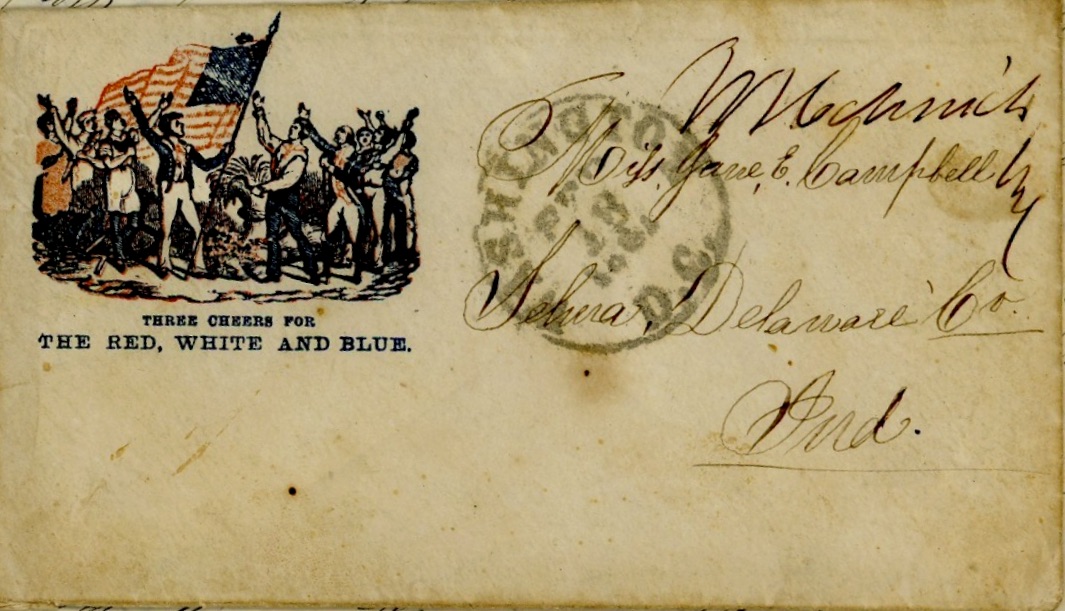 THREE CHEERS FOR
THE RED, WHITE AND BLUE.
WASHINGTON
18
D.C.
Miss. Jane, E. Campbell
Selma, Delaware Co.
Ind.